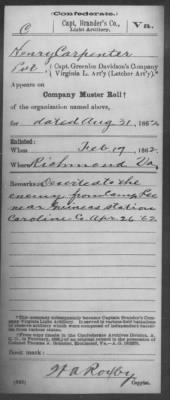 (Confederate.)
C Capt. Brander's Co., Va.
Light Artillery.
Henry Carpenter
Pvt, Capt. Greenlee Davidson's Company
Virginia L. Art'y (Letcher Art'y).*
Appears on
Company Muster Roll†
of the organization named above,
for dated Aug 31, 1862
Enlisted:
When Feb 19, 1862
Where Richmond Va.
Remarks: Deserted to the
enemy from Camp Lee
near Guineas station
Caroline Co. Apr 26 '62
Book mark:
W A Roxby
Copyist.